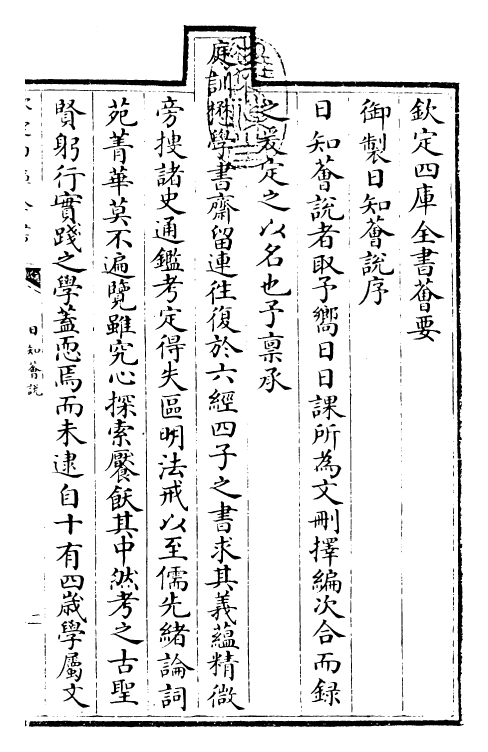 欽定四庫全書薈要
御製日知薈說序
日知薈說者取予嚮日日課所為文刪擇編次合而錄
之爰定之以名也予禀承
庭訓懋學書齋留連往復於六經四子之書求其義蘊精微
旁搜諸史通鑑考定得失區明法戒以至儒先緒論詞
苑菁華莫不遍覽雖究心探索饜飫其中然考之古聖
賢躬行實踐之學蓋恧焉而未逮自十有四歲學屬文
日知薈說
二